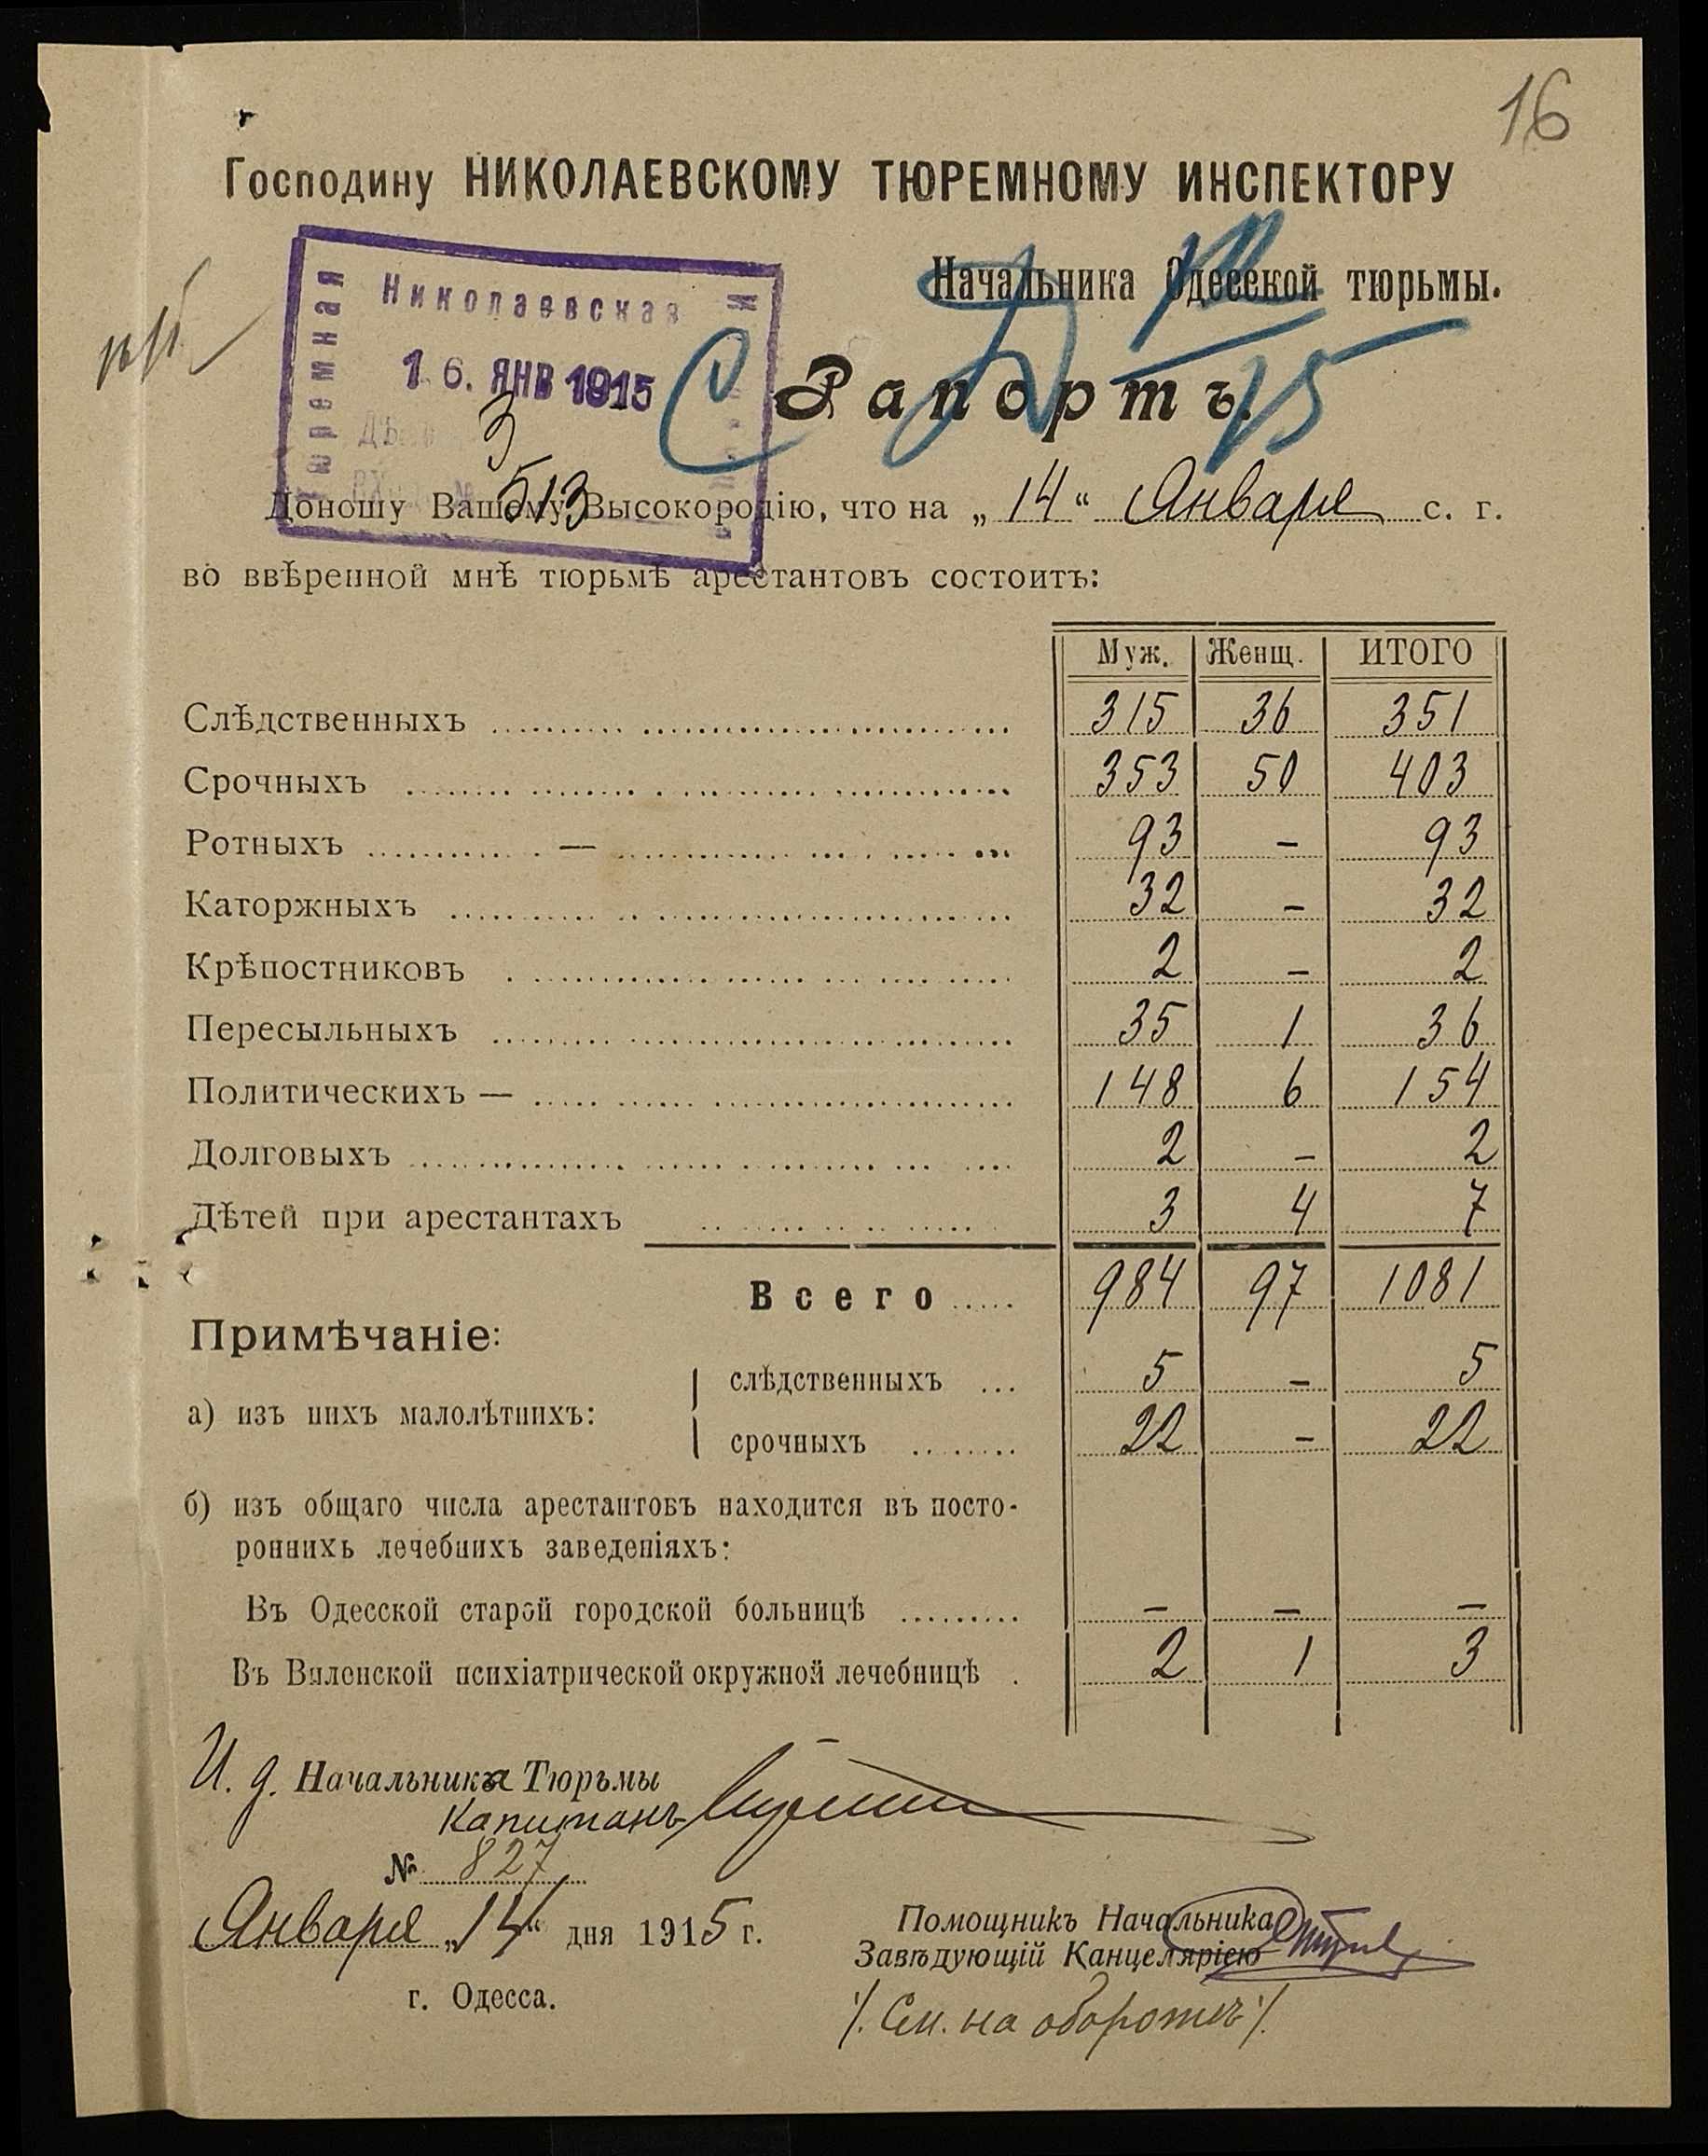 16
Господину НИКОЛАЕВСКОМУ ТЮРЕМНОМУ ИНСПЕКТОРУ
Начальника Одесской тюрьмы.
Николаевская
Тюремная
16. ЯНВ 1915
3
513
Рапортъ.
Доношу Вашему Высокородію, что на „14“ Января с. г.
во ввѣренной мнѣ тюрьмѣ арестантовъ состоитъ:
Муж. Женщ. ИТОГО
Слѣдственныхъ 315 36 351
Срочныхъ 353 50 403
Ротныхъ — 93 - 93
Каторжныхъ 32 - 32
Крѣпостниковъ 2 - 2
Пересыльныхъ 35 1 36
Политическихъ — 148 6 154
Долговыхъ 2 - 2
Дѣтей при арестантахъ 3 4 7
Всего 984 97 1081
Примѣчаніе:
а) изъ нихъ малолѣтнихъ:
слѣдственныхъ 5 - 5
срочныхъ 22 - 22
б) изъ общаго числа арестантовъ находится въ посто-
роннихъ лечебнихъ заведеніяхъ:
Въ Одесской старой городской больницѣ - - -
Въ Виленской психіатрической окружной лечебницѣ 2 1 3
И. д. Начальника Тюрьмы
Капитанъ
№ 827
Января „14“ дня 1915 г.
г. Одесса.
Помощникъ Начальника
Завѣдующій Канцеляріею
/. См. на оборотѣ /.